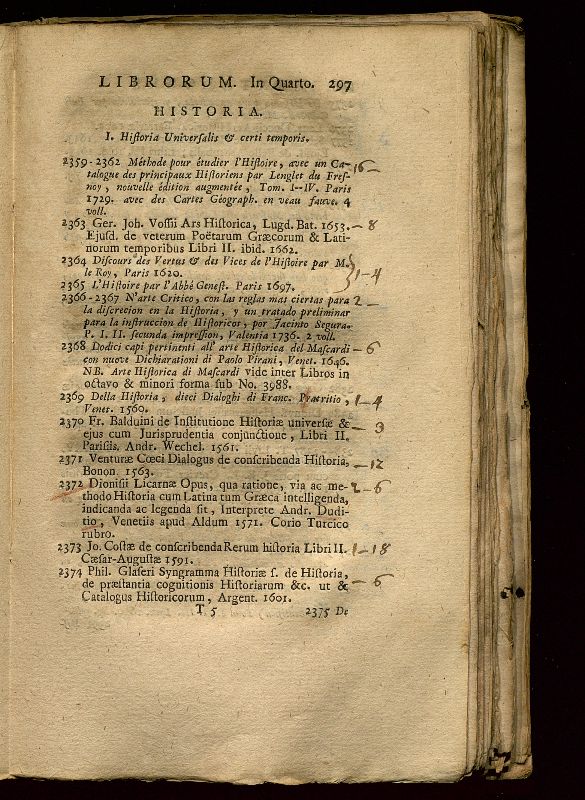 LIBRORUM. In Quarto. 297
HISTORIA.
I. Hiſtoria Univerſalis & certi temporis.
2359-2362 Méthode pour étudier l'Hiſtoire, avec un Ca- 16 –
talogue des principaux Hiſtoriens par Lenglet du Freſ-
noy, nouvelle édition augmentée, Tom. I--IV. Paris
1729. avec des Cartes Géograph. en veau fauve. 4
voll.
2363 Ger. Joh. Voſſii Ars Hiſtorica, Lugd. Bat. 1653. – 8
Ejuſd. de veterum Poëtarum Græcorum & Lati-
norum temporibus Libri II. ibid. 1662.
2364 Diſcours des Vertus & des Vices de l'Hiſtoire par M.
le Roy, Paris 1620. 1–4
2365 L'Hiſtoire par l'Abbé Geneſt. Paris 1697.
2366-2367 N'arte Critico, con las reglas mas ciertas para 2 –
la diſcrecion en la Hiſtoria, y un tratado preliminar
para la inſtruccion de Hiſtoricos, por Jacinto Segura.
P. I. II. ſecunda impreſſion, Valentia 1736. 2 voll.
2368 Dodici capi pertinenti all' arte Hiſtorica del Maſcardi – 6
con nuove Dichiarationi di Paolo Pirani, Venet. 1646.
NB. Arte Hiſtorica di Maſcardi vide inter Libros in
octavo & minori forma ſub No. 3988.
2369 Della Hiſtoria, dieci Dialoghi di Franc. Pratritio, 1–4
Venet. 1560.
2370 Fr. Balduini de Inſtitutione Hiſtoriæ univerſæ &
ejus cum Jurisprudentia conjunctione, Libri II. – 3
Pariſiis, Andr. Wechel. 1561.
2371 Venturæ Cœci Dialogus de conſcribenda Hiſtoria, – 12
Bonon. 1563.
2372 Dioniſii Licarnæ Opus, qua ratione, via ac me- 2–6
thodo Hiſtoria cum Latina tum Græca intelligenda,
indicanda ac legenda ſit, Interprete Andr. Dudi-
tio, Venetiis apud Aldum 1571. Corio Turcico
rubro.
2373 Jo. Coſtæ de conſcribenda Rerum hiſtoria Libri II. 1–18
Cæſar-Auguſtæ 1591.
2374 Phil. Glaſeri Syngramma Hiſtoriæ ſ. de Hiſtoria,
de præſtantia cognitionis Hiſtoriarum &c. ut & – 6
Catalogus Hiſtoricorum, Argent. 1601.
T 5 2375 De